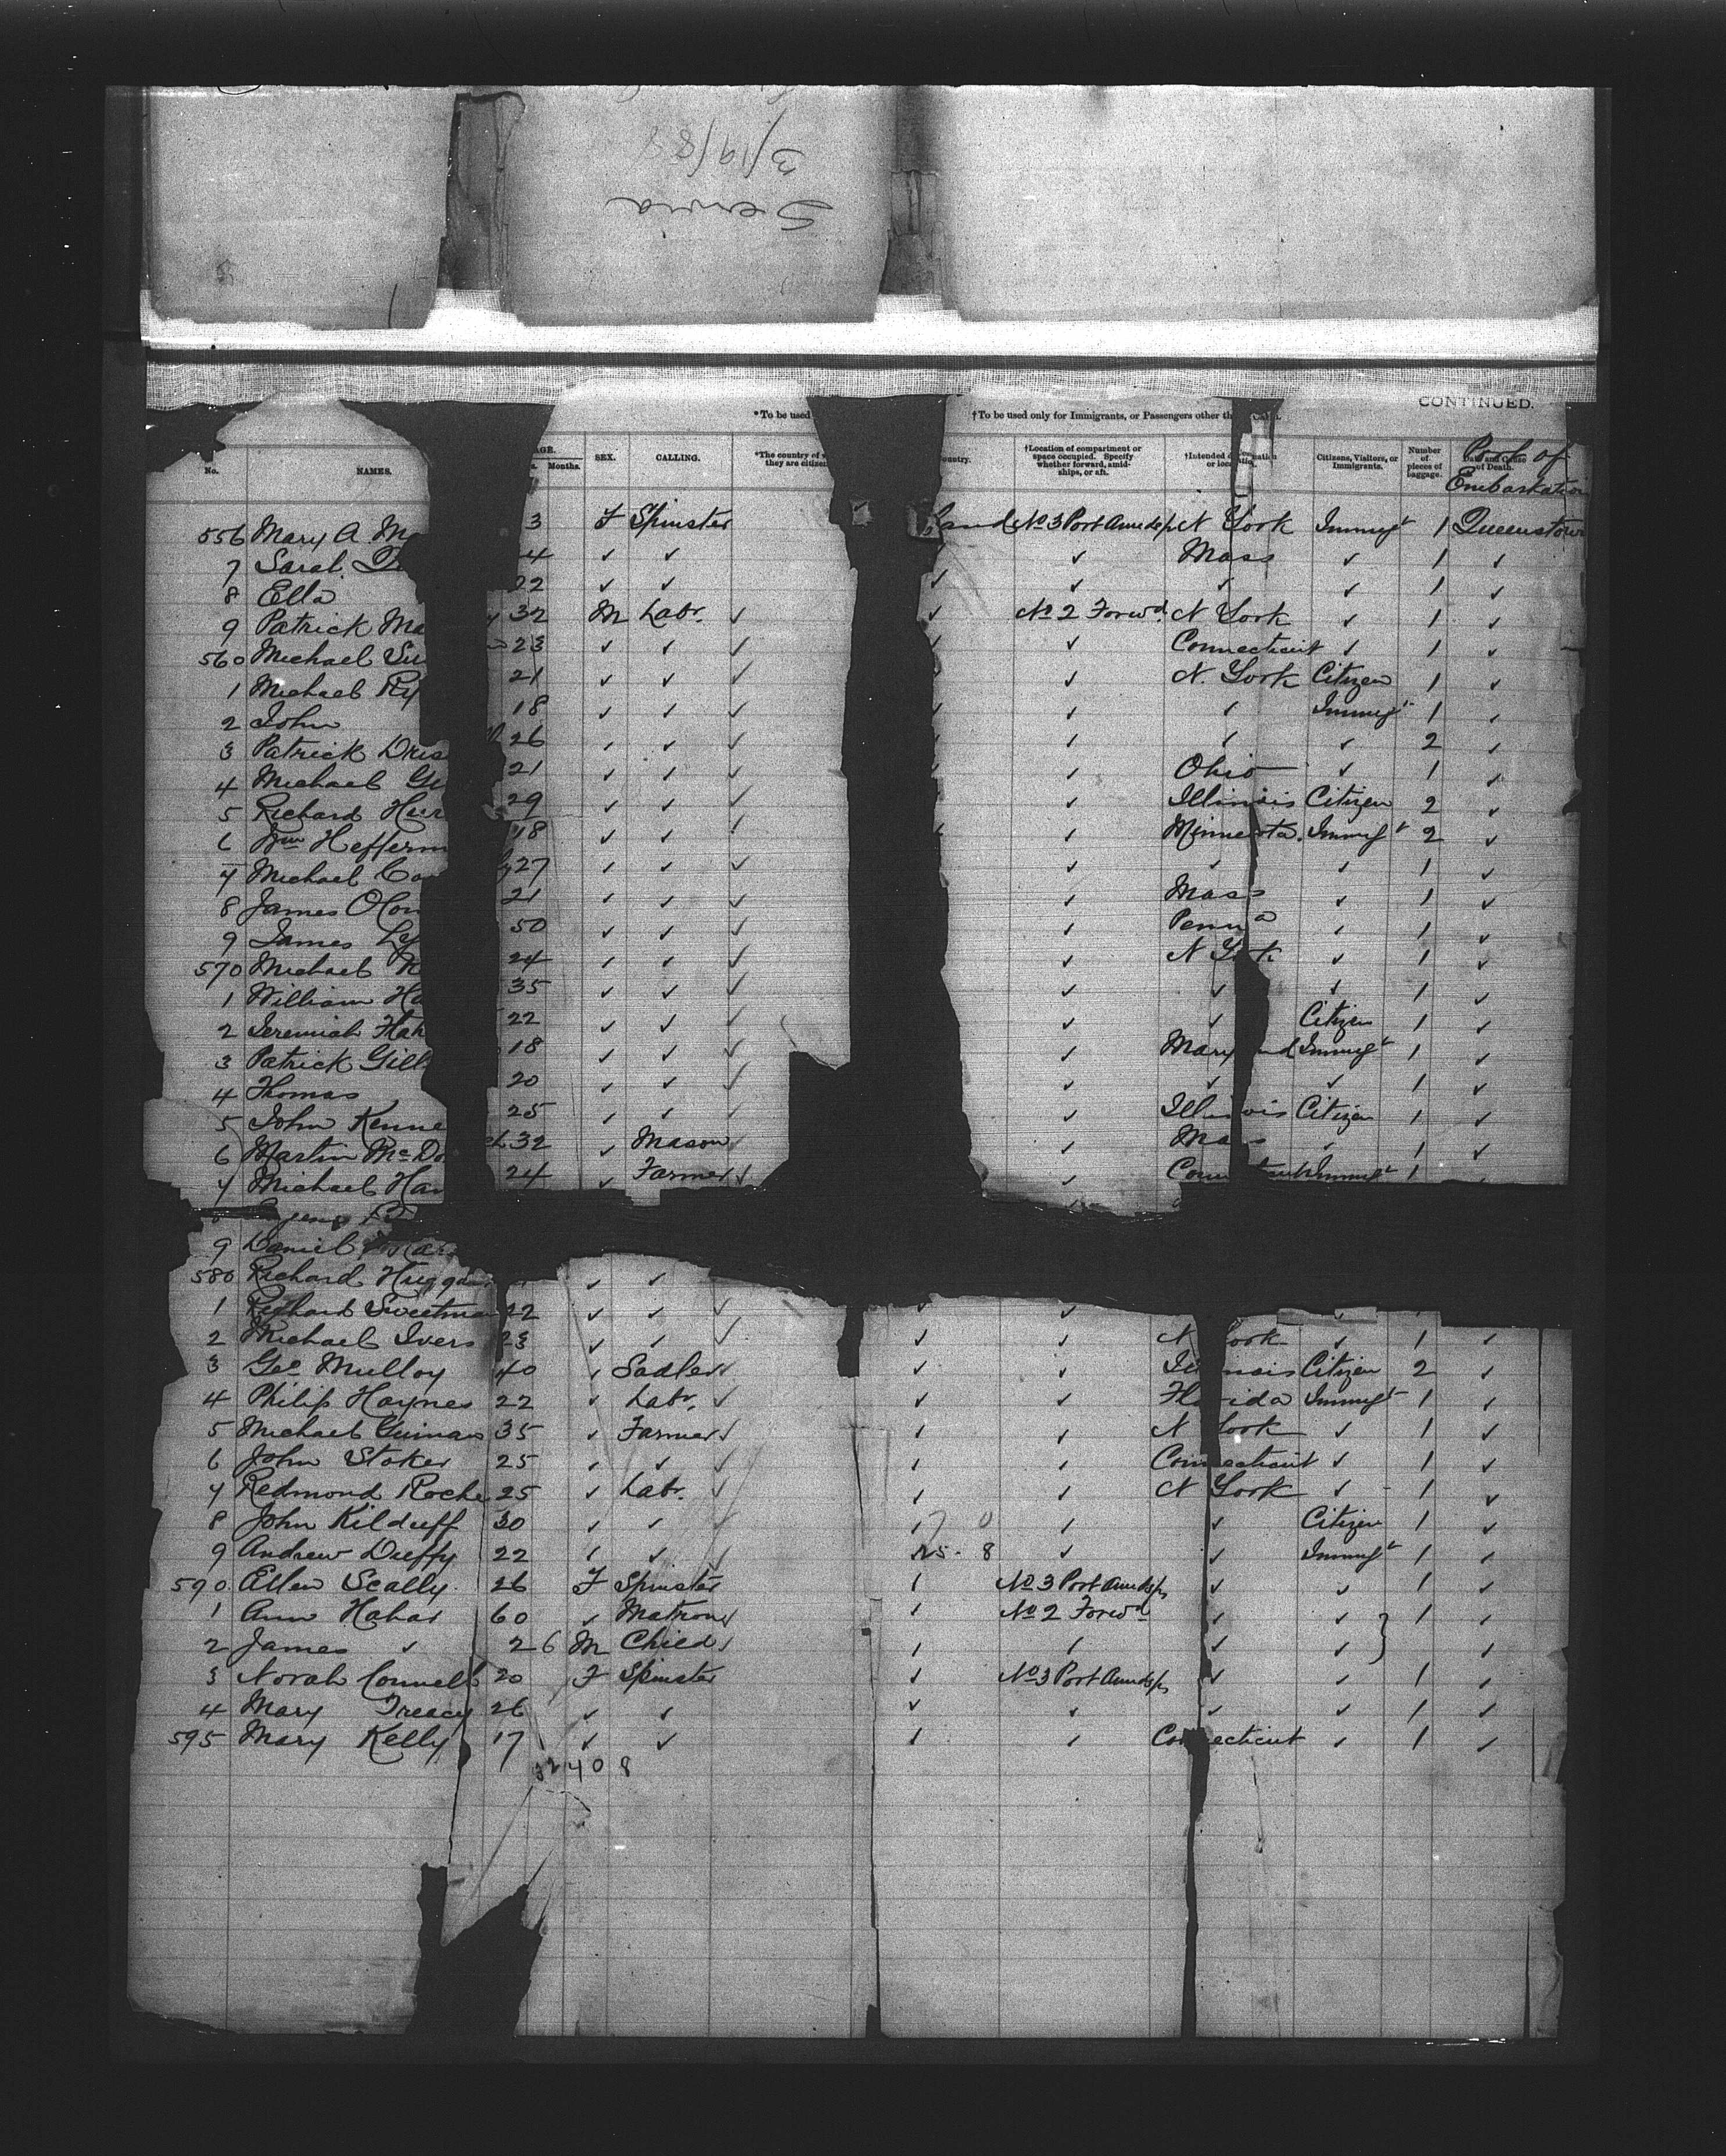 Servia
3/19/88
CONTINUED.
*To be used
†To be used only for Immigrants, or Passengers other th
No. NAMES. AGE. Months. SEX. CALLING. *The country of w they are citizen ountry. †Location of compartment or space occupied. Specify whether forward, amidships, or aft. †Intended or loca Citizens, Visitors, or Immigrants. Number of pieces of baggage. Port of Embarkation
556 Mary A. M 3 F Spinster land No 3 Port Amidsps N York Immigt 1 Queenstown
7 Sarah 4 ✓ ✓ ✓ Mass ✓ 1 ✓
8 Ella 22 ✓ ✓ ✓ ✓ ✓ ✓ 1 ✓
9 Patrick Ma 32 M Labr. ✓ ✓ No 2 Forwd. N York ✓ 1 ✓
560 Michael Su 23 ✓ ✓ ✓ ✓ Connecticut ✓ 1 ✓
1 Michael Ry 21 ✓ ✓ ✓ ✓ N. York Citizen 1 ✓
2 John 18 ✓ ✓ ✓ ✓ ✓ Immigt 1 ✓
3 Patrick Dris 26 ✓ ✓ ✓ ✓ ✓ ✓ 2 ✓
4 Michael Gu 21 ✓ ✓ ✓ ✓ Ohio ✓ 1 ✓
5 Richard Hur 29 ✓ ✓ ✓ ✓ Illinois Citizen 2 ✓
6 Wm Hefferm 18 ✓ ✓ ✓ ✓ Minnesota. Immigt 2 ✓
7 Michael Co 27 ✓ ✓ ✓ ✓ ✓ ✓ 1 ✓
8 James OCon 21 ✓ ✓ ✓ ✓ Mass ✓ 1 ✓
9 James Ly 50 ✓ ✓ ✓ ✓ Penna ✓ 1 ✓
570 Michael 24 ✓ ✓ ✓ ✓ N York ✓ 1 ✓
1 William Ha 35 ✓ ✓ ✓ ✓ ✓ ✓ 1 ✓
2 Jeremiah Hah 22 ✓ ✓ ✓ ✓ ✓ Citizen 1 ✓
3 Patrick Gill 18 ✓ ✓ ✓ ✓ Mary nd Immigt 1 ✓
4 Thomas 20 ✓ ✓ ✓ ✓ ✓ ✓ 1 ✓
5 John Kenne 25 ✓ ✓ ✓ Illinois Citizen 1 ✓
6 Martin McDo 32 ✓ Mason ✓ ✓ Mass ✓ 1 ✓
7 Michael Han 24 ✓ Farmer ✓ ✓ Conn Immigt 1
9 Daniel
580 Richard Huggar ✓ ✓
1 Richard Sweetman 22 ✓ ✓ ✓ ✓ ✓
2 Michael Ivers 23 ✓ ✓ ✓ ✓ ✓ N York ✓ 1 ✓
3 Geo Mulloy 40 ✓ Sadler ✓ ✓ ✓ Il nois Citizen 2 ✓
4 Philip Haynes 22 ✓ Labr. ✓ ✓ ✓ Florida Immigt 1 ✓
5 Michael Guinan 35 ✓ Farmer ✓ ✓ ✓ N York ✓ 1 ✓
6 John Stoker 25 ✓ ✓ ✓ ✓ ✓ Connecticut ✓ 1 ✓
7 Redmond Roche 25 ✓ Labr. ✓ ✓ ✓ N York ✓ 1 ✓
8 John Kilduff 30 ✓ ✓ ✓ ✓ ✓ ✓ Citizen 1 ✓
9 Andrew Duffy 22 ✓ ✓ ✓ ✓ ✓ Immigt 1 ✓
590 Ellen Scally 26 F Spinster ✓ No 3 Port Amidsps ✓ ✓ 1 ✓
1 Ann Hahar 60 ✓ Matron ✓ ✓ No 2 Forwd ✓ ✓ 1 ✓
2 James ✓ 2 6 M Child ✓ ✓ ✓ ✓ ✓ ✓
3 Norah Connell 20 F Spinster ✓ No 3 Port Amidsps ✓ ✓ 1 ✓
4 Mary Treacy 26 ✓ ✓ ✓ ✓ ✓ ✓ 1 ✓
595 Mary Kelly 17 ✓ ✓ ✓ ✓ Connecticut ✓ 1 ✓